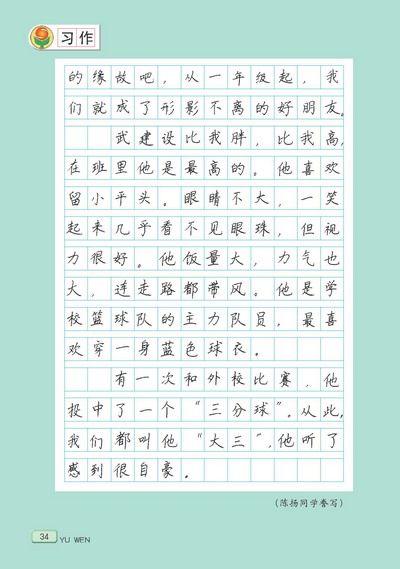 习作
的缘故吧，从一年级起，我
们就成了形影不离的好朋友。
武建设比我胖，比我高，
在班里他是最高的。他喜欢
留小平头。眼睛不大，一笑
起来几乎看不见眼珠，但视
力很好。他饭量大，力气也
大，连走路都带风。他是学
校篮球队的主力队员，最喜
欢穿一身蓝色球衣。
有一次和外校比赛，他
投中了一个“三分球”。从此，
我们都叫他“大三”，他听了
感到很自豪。
（陈扬同学誊写）
34 YU WEN